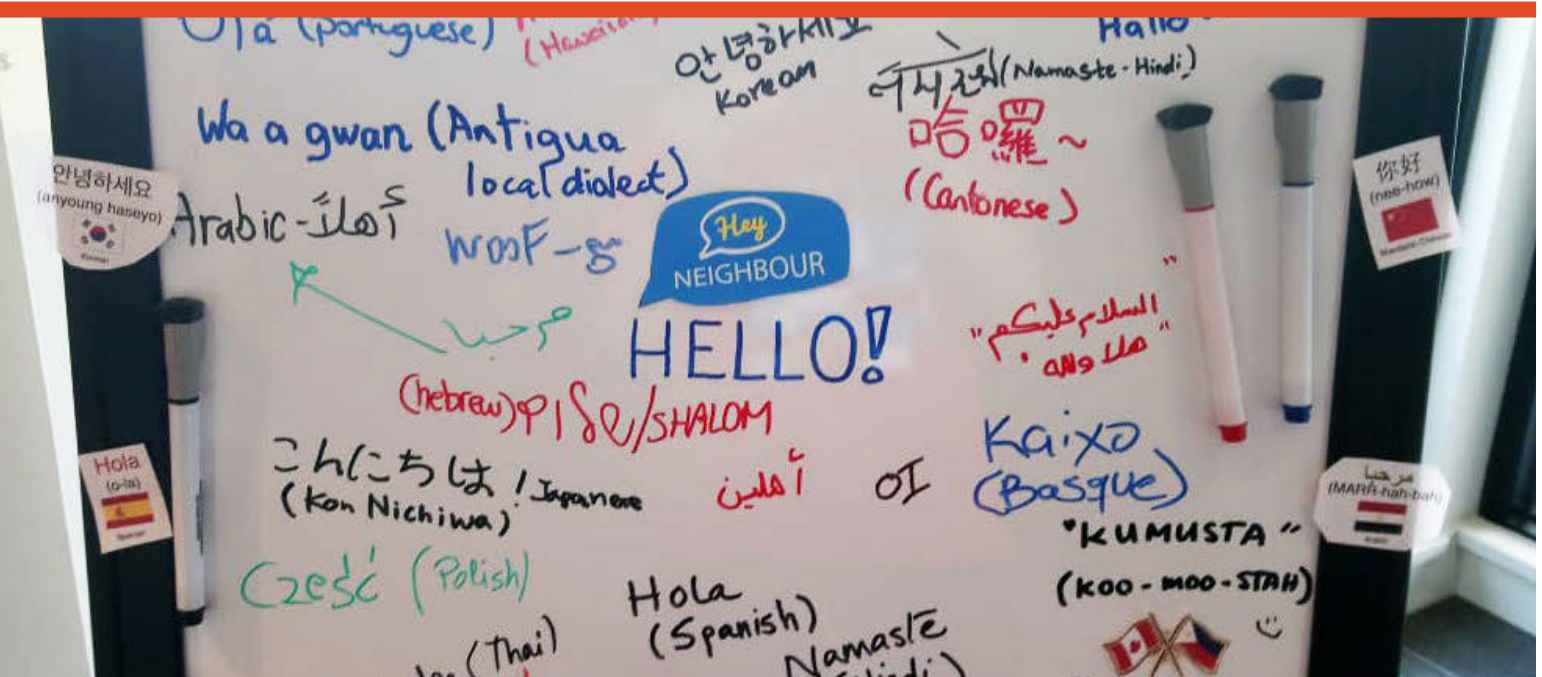 Olá (portuguese)
(Hawaiian)
안녕하세요
Korean
Hallo
(Namaste-Hindi)
Wa a gwan (Antigua
local dialect)
哈囉~
(Cantonese)
안녕하세요
(anyoung haseyo)
Korean
你好
(nee-how)
Mandarin Chinese
Arabic - أهلاً
WOOF -
Hey
NEIGHBOUR
HELLO!
مرحبا
"السلام عليكم"
(hebrew) שלום/SHALOM
こんにちは! Japanese
(Kon Nichiwa)
أهلين
OI
Kaixo
(Basque)
Hola
(o-la)
Spanish
مرحبا
(MARR-hah-bah)
Arabic
"KUMUSTA"
(KOO-MOO-STAH)
Cześć (Polish)
Hola
(Spanish)
(Thai)
Namaste